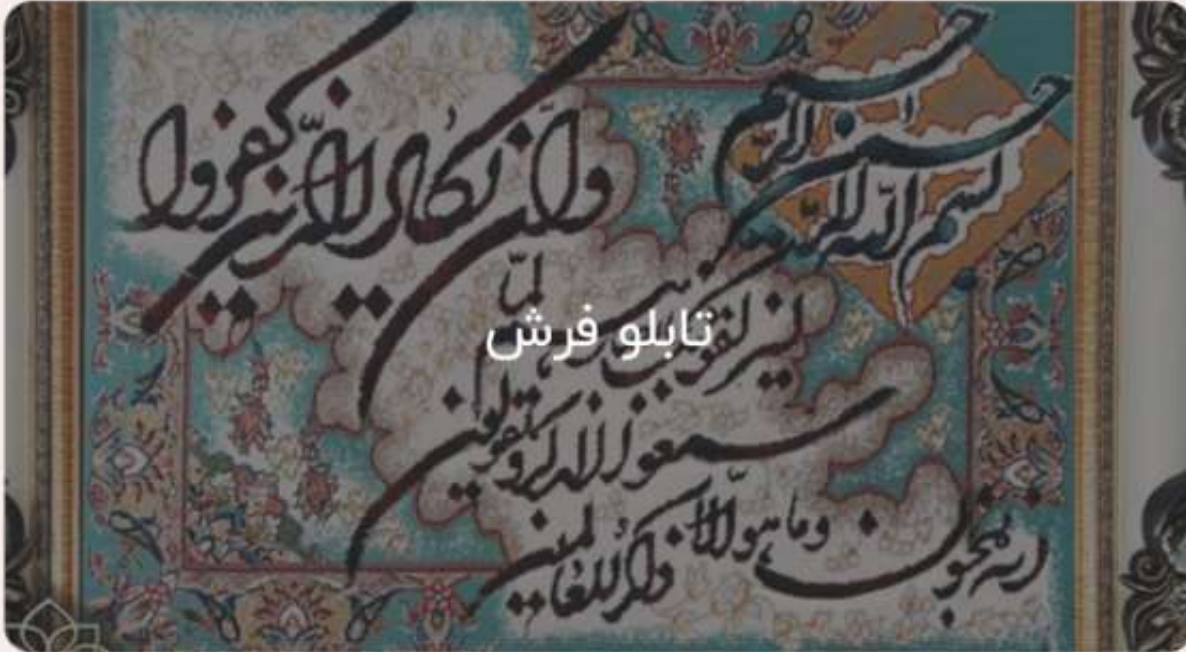 بسم الله الرحمن الرحیم
وان یکاد الذین کفروا
لیزلقونک بابصارهم لمّا
تابلو فرش
سمعوا الذکر و یقولون
انه لمجنون وما هو الّا ذکر للعالمین